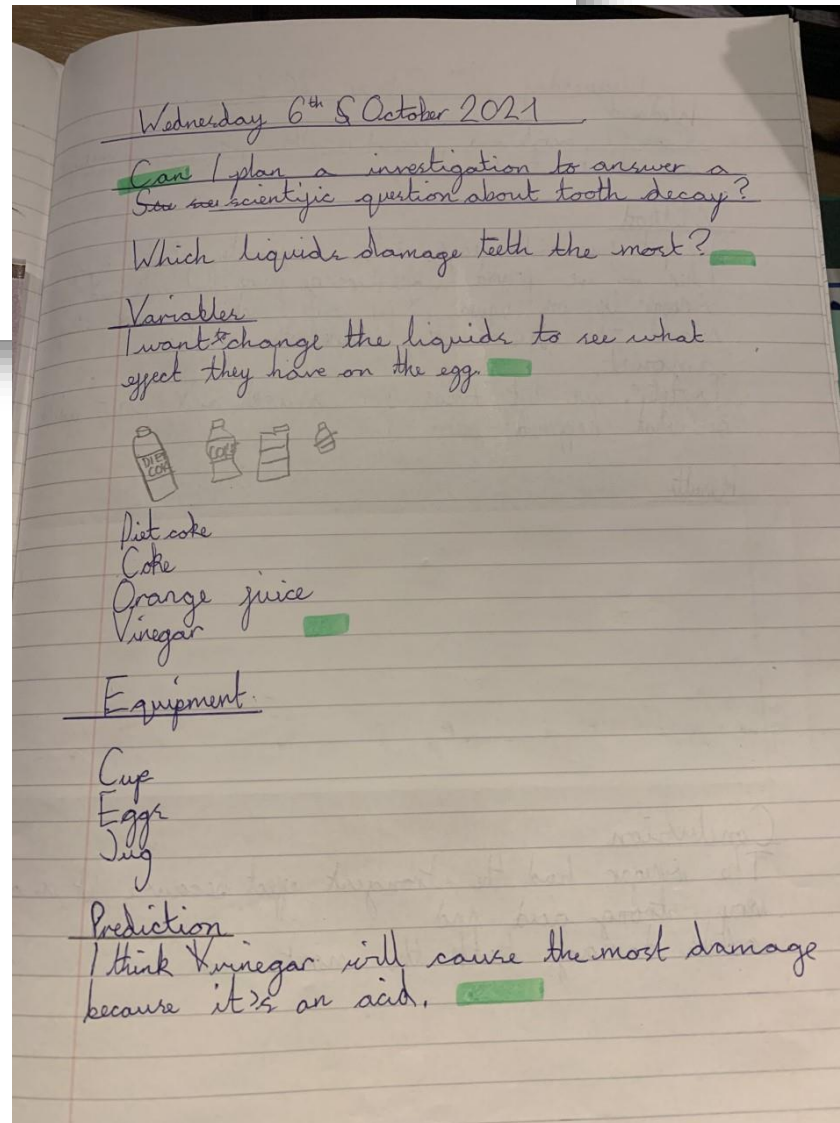 Wednesday 6th & October 2021
Can I plan a investigation to answer a
scientific question about tooth decay?
Which liquids damage teeth the most?
Variables
I want to change the liquids to see what
effect they have on the egg.
DIET
COK
COKE
Diet coke
Coke
Orange juice
Vinegar
Equipment.
Cup
Eggs
Jug
Prediction
I think vinegar will cause the most damage
because it's an acid.